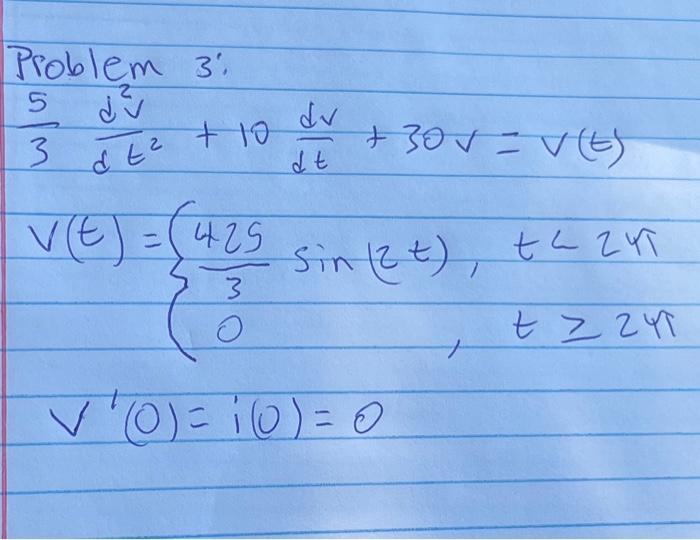 Problem 3:
5/3 d²v/dt² + 10 dv/dt + 30v = V(t)
V(t) = { 425/3 sin(2t), t < 2π
0 , t ≥ 2π
V'(0) = i(0) = 0